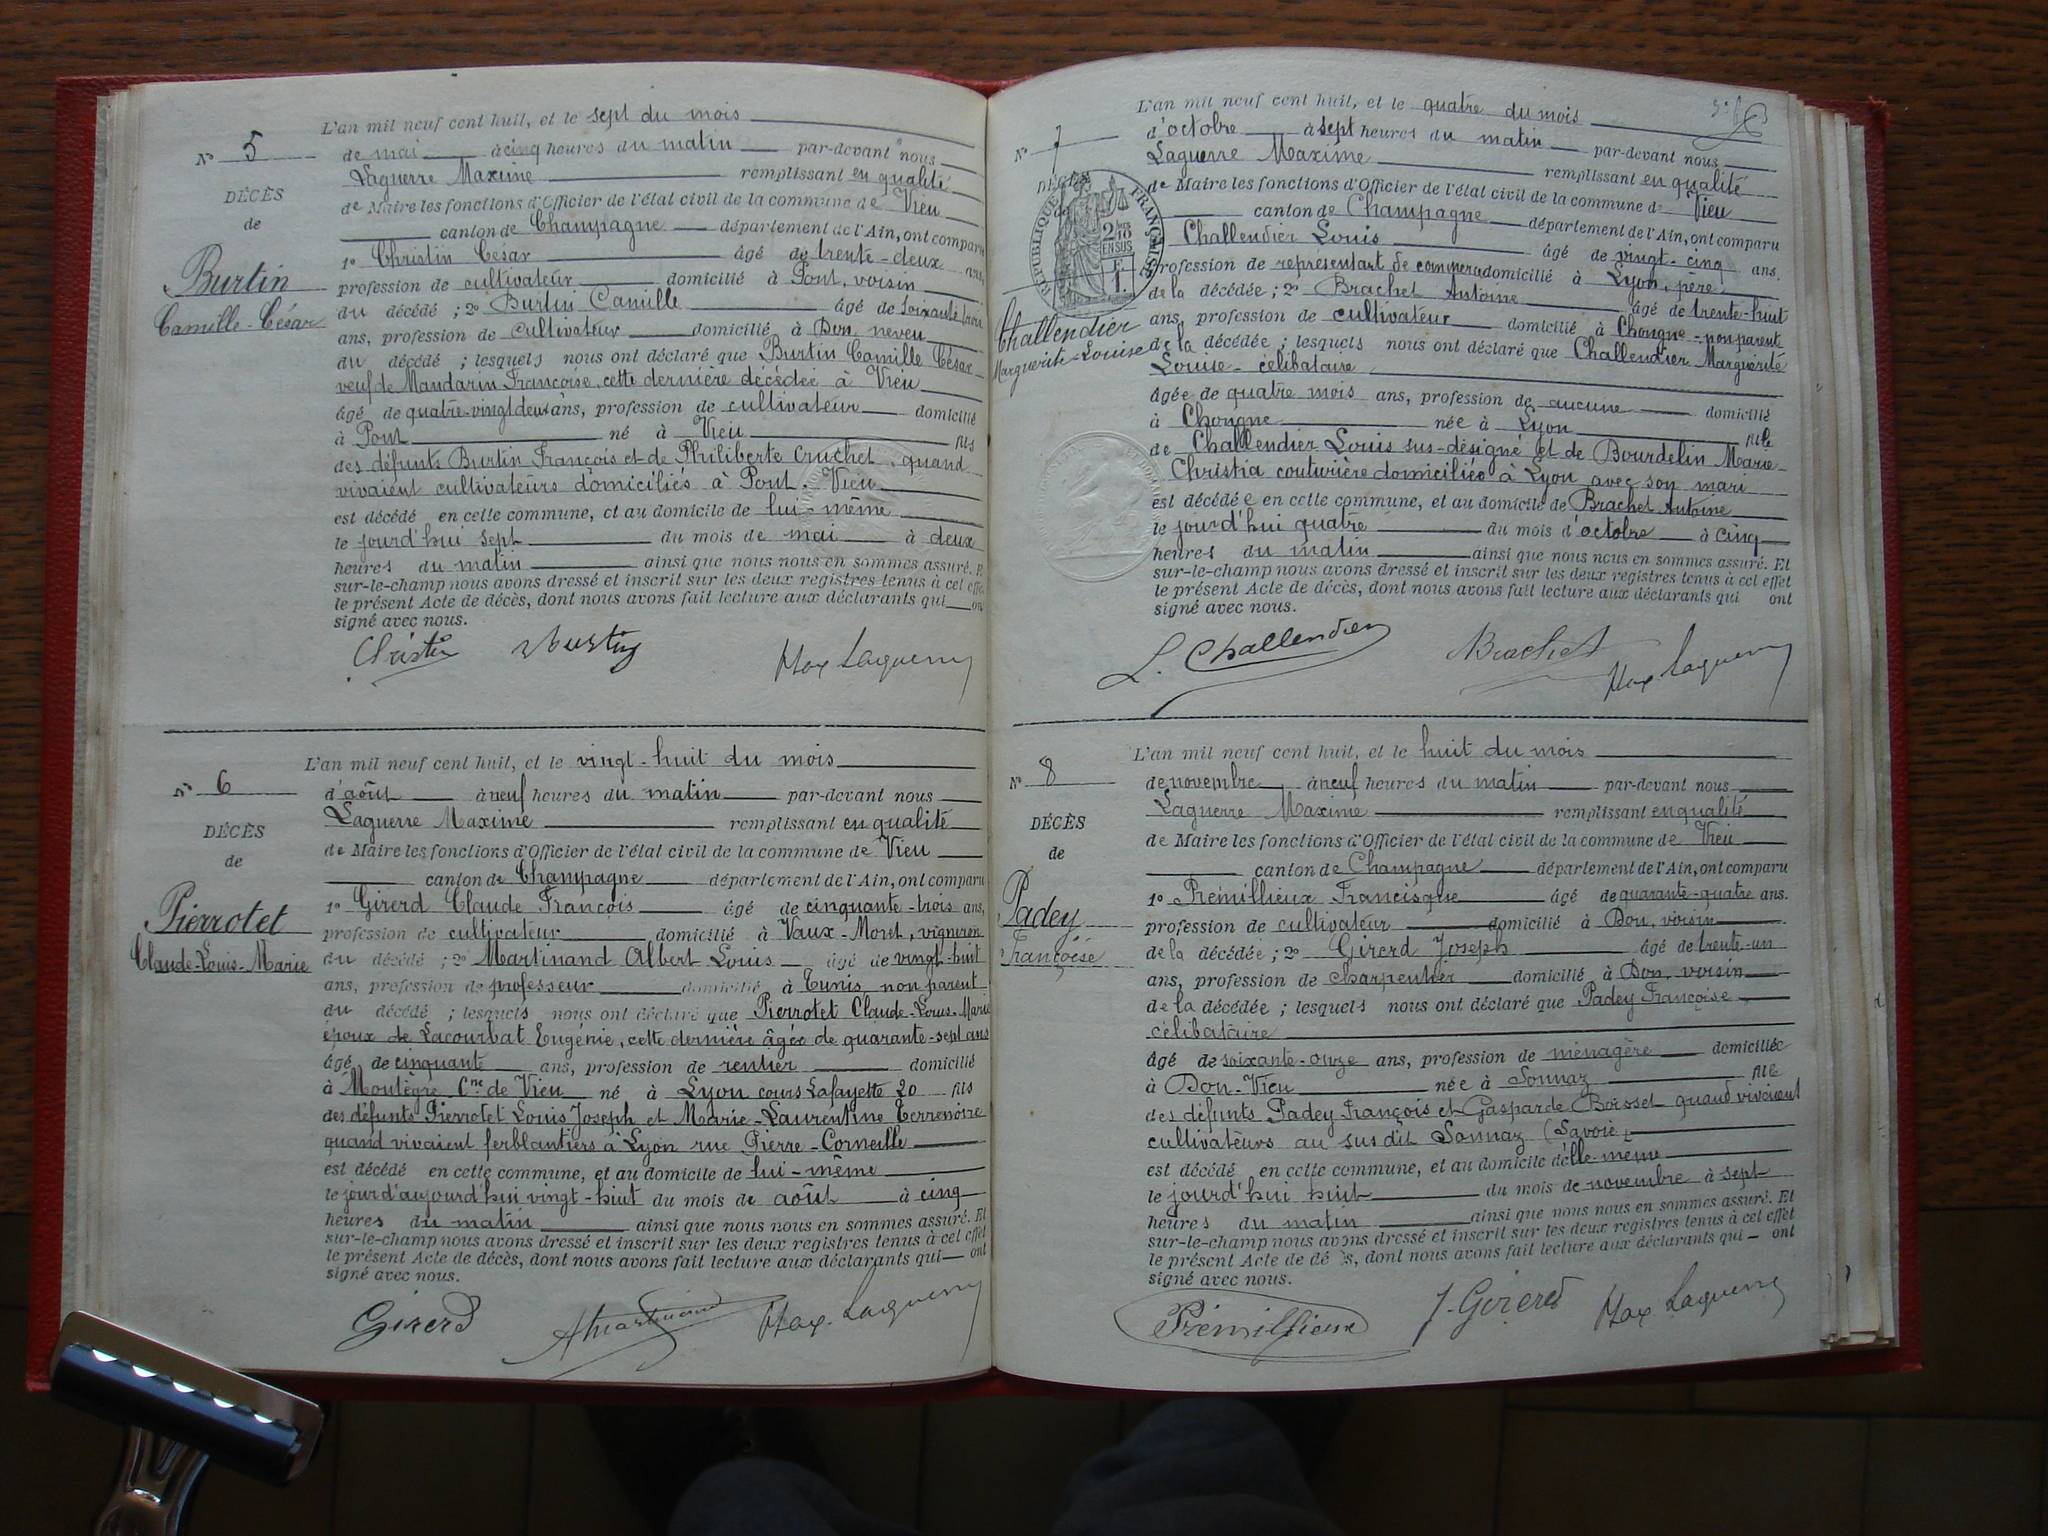 L'an mil neuf cent huit, et le sept du mois
N° 5
de mai à cinq heures du matin par-devant nous
Laguerre Maxime remplissant en qualité
DÉCÈS
de Maire les fonctions d'Officier de l'état civil de la commune de Vieu
de
canton de Champagne département de l'Ain, ont comparu
1° Christin César âgé de trente-deux ans,
Burtin
profession de cultivateur domicilié à Pont, voisin
Camille-César
du décédé ; 2° Burtin Camille âgé de soixante trois
ans, profession de cultivateur domicilié à Don, neveu
du décédé ; lesquels nous ont déclaré que Burtin Camille César
veuf de Mandarin Françoise, cette dernière décédée à Vieu
âgé de quatre-vingt deux ans, profession de cultivateur domicilié
à Pont né à Vieu fils
des défunts Burtin François et de Philiberte Cruchet, quand
vivaient cultivateurs domiciliés à Pont. Vieu
est décédé en cette commune, et au domicile de lui-même
le jourd'hui sept du mois de mai à deux
heures du matin ainsi que nous nous en sommes assuré. Et
sur-le-champ nous avons dressé et inscrit sur les deux registres tenus à cet effet
le présent Acte de décès, dont nous avons fait lecture aux déclarants qui ont
signé avec nous.
Christin Burtin Max Laguerre
L'an mil neuf cent huit, et le vingt-huit du mois
N° 6
d'août à neuf heures du matin par-devant nous
Laguerre Maxime remplissant en qualité
DÉCÈS
de Maire les fonctions d'Officier de l'état civil de la commune de Vieu
de
canton de Champagne département de l'Ain, ont comparu
1° Girerd Claude François âgé de cinquante-trois ans,
Pierrotet
profession de cultivateur domicilié à Vaux-Mont, vigneron
Claude-Louis-Marie
du décédé ; 2° Martinand Albert Louis âgé de vingt-huit
ans, profession de professeur domicilié à Tunis, non parent
du décédé ; lesquels nous ont déclaré que Pierrotet Claude-Louis-Marie
époux de Lacourbat Eugénie, cette dernière âgée de quarante-sept ans
âgé de cinquante ans, profession de rentier domicilié
à Montègre Cne de Vieu né à Lyon cours Lafayette 20 fils
des défunts Pierrotet Louis Joseph et Marie-Laurentine Terrenoire
quand vivaient ferblantiers à Lyon rue Pierre-Corneille
est décédé en cette commune, et au domicile de lui-même
le jour d'aujourd'hui vingt-huit du mois de août à cinq
heures du matin ainsi que nous nous en sommes assuré. Et
sur-le-champ nous avons dressé et inscrit sur les deux registres tenus à cet effet
le présent Acte de décès, dont nous avons fait lecture aux déclarants qui ont
signé avec nous.
Girerd AMartinand Max Laguerre
L'an mil neuf cent huit, et le quatre du mois
N° 7
d'octobre à sept heures du matin par-devant nous
Laguerre Maxime remplissant en qualité
DÉCÈS
de Maire les fonctions d'Officier de l'état civil de la commune de Vieu
de
canton de Champagne département de l'Ain, ont comparu
RÉPUBLIQUE FRANÇAISE
Challendier Louis âgé de vingt-cinq ans.
profession de représentant de commerce domicilié à Lyon, père,
de la décédée ; 2° Brachet Antoine âgé de trente-huit
Challendier
Marguerite-Louise
ans, profession de cultivateur domicilié à Chongne - non parent
de la décédée ; lesquels nous ont déclaré que Challendier Marguerite
Louise - célibataire
âgée de quatre mois ans, profession de aucune domicilié
à Chongne née à Lyon fille
de Challendier Louis sus-désigné et de Bourdelin Marie-
Christia couturière domiciliée à Lyon avec son mari
est décédée en cette commune, et au domicile de Brachet Antoine
le jourd'hui quatre du mois d'octobre à cinq
heures du matin ainsi que nous nous en sommes assuré. Et
sur-le-champ nous avons dressé et inscrit sur les deux registres tenus à cet effet
le présent Acte de décès, dont nous avons fait lecture aux déclarants qui ont
signé avec nous.
L. Challendier Brachet Max Laguerre
L'an mil neuf cent huit, et le huit du mois
N° 8
de novembre à neuf heures du matin par-devant nous
Laguerre Maxime remplissant en qualité
DÉCÈS
de Maire les fonctions d'Officier de l'état civil de la commune de Vieu
de
canton de Champagne département de l'Ain, ont comparu
1° Prémillieux Francisque âgé de quarante-quatre ans.
Padey
profession de cultivateur domicilié à Don, voisin
Françoise
de la décédée ; 2° Girerd Joseph âgé de trente-un
ans, profession de charpentier domicilié à Don, voisin
de la décédée ; lesquels nous ont déclaré que Padey Françoise
célibataire
âgé de soixante-onze ans, profession de ménagère domiciliée
à Don-Vieu née à Sonnaz fille
des défunts Padey François et Gasparde Boisset quand vivaient
cultivateurs au susdit Sonnaz (Savoie)
est décédé en cette commune, et au domicile d'elle-même
le jourd'hui huit du mois de novembre à sept
heures du matin ainsi que nous nous en sommes assuré. Et
sur-le-champ nous avons dressé et inscrit sur les deux registres tenus à cet effet
le présent Acte de décès, dont nous avons fait lecture aux déclarants qui ont
signé avec nous.
Prémillieux J. Girerd Max Laguerre